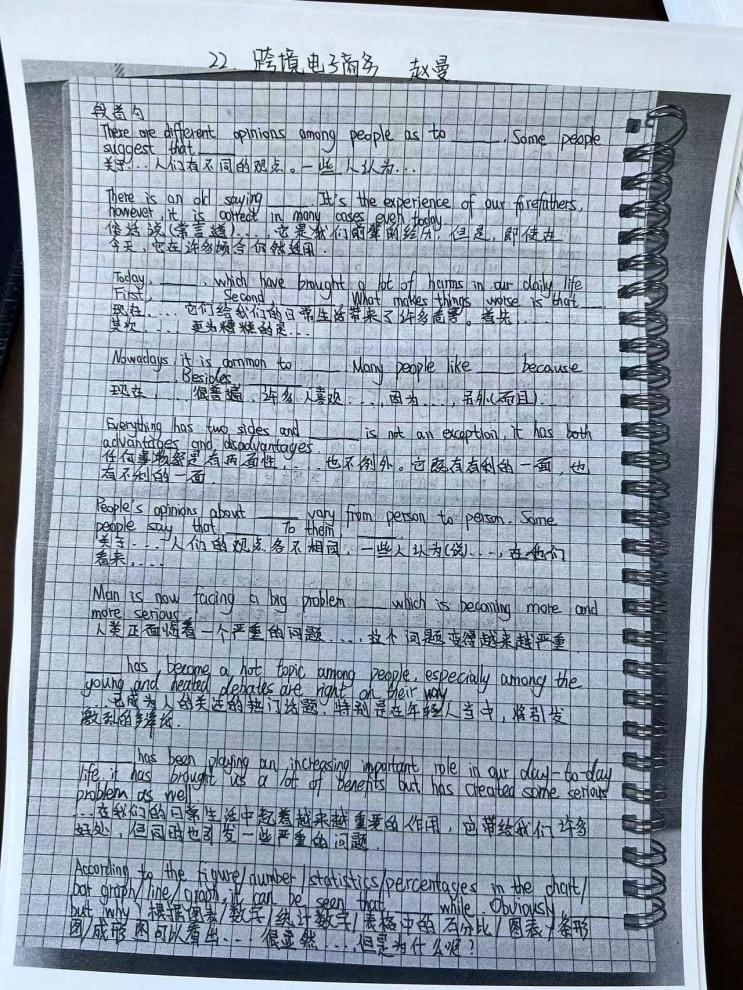 22. 跨境电子商务 赵曼
段首句
There are different opinions among people as to ____. Some people
suggest that ____
关于...人们有不同的观点。一些人认为...
There is an old saying ____. It's the experience of our forefathers,
however, it is correct in many cases even today.
俗话说(常言道)..., 它是我们前辈的经历, 但是, 即使在
今天, 它在许多场合仍然适用.
Today, ____, which have brought a lot of harms in our daily life
First, ____ Second, ____ What makes things worse is that ____
现在, ... 它们给我们的日常生活带来了许多危害。首先, ...
其次, ... 更为糟糕的是...
Nowadays, it is common to ____ Many people like ____ because
____. Besides, ____
现在, ... 很普遍, 许多人喜欢..., 因为..., 另外(而且)...
Everything has two sides and ____ is not an exception, it has both
advantages and disadvantages
任何事物都是有两面性, ... 也不例外。它既有有利的一面, 也
有不利的一面.
People's opinions about ____ vary from person to person. Some
people say that ____ To them ____
关于... 人们的观点各不相同, 一些人认为(说)..., 在他们
看来, ...
Man is now facing a big problem ____ which is becoming more and
more serious
人类正面临着一个严重的问题..., 这个问题变得越来越严重.
____ has become a hot topic among people, especially among the
young and heated debates are right on their way
...已成为人的关注的热门话题, 特别是在年轻人当中, 将引发
激烈的
____ has been playing an increasing important role in our day-to-day
life. it has brought us a lot of benefits but has created some serious
problem as well
...在我们的日常生活中起着越来越重要的作用, 它带给我们许多
好处, 但同时也引发一些严重的问题.
According to the figure/number/statistics/percentages in the chart/
bar graph/line/graph, it can be seen that ____ while. Obviously ____
but why? 根据图表/数字/统计数字/表格中的百分比/图表/条形
图/成形图可以看出... 很显然..., 但是为什么呢?